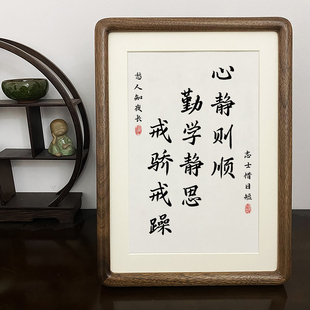 志士惜日短
心静则顺
勤学静思
戒骄戒躁
愁人知夜长